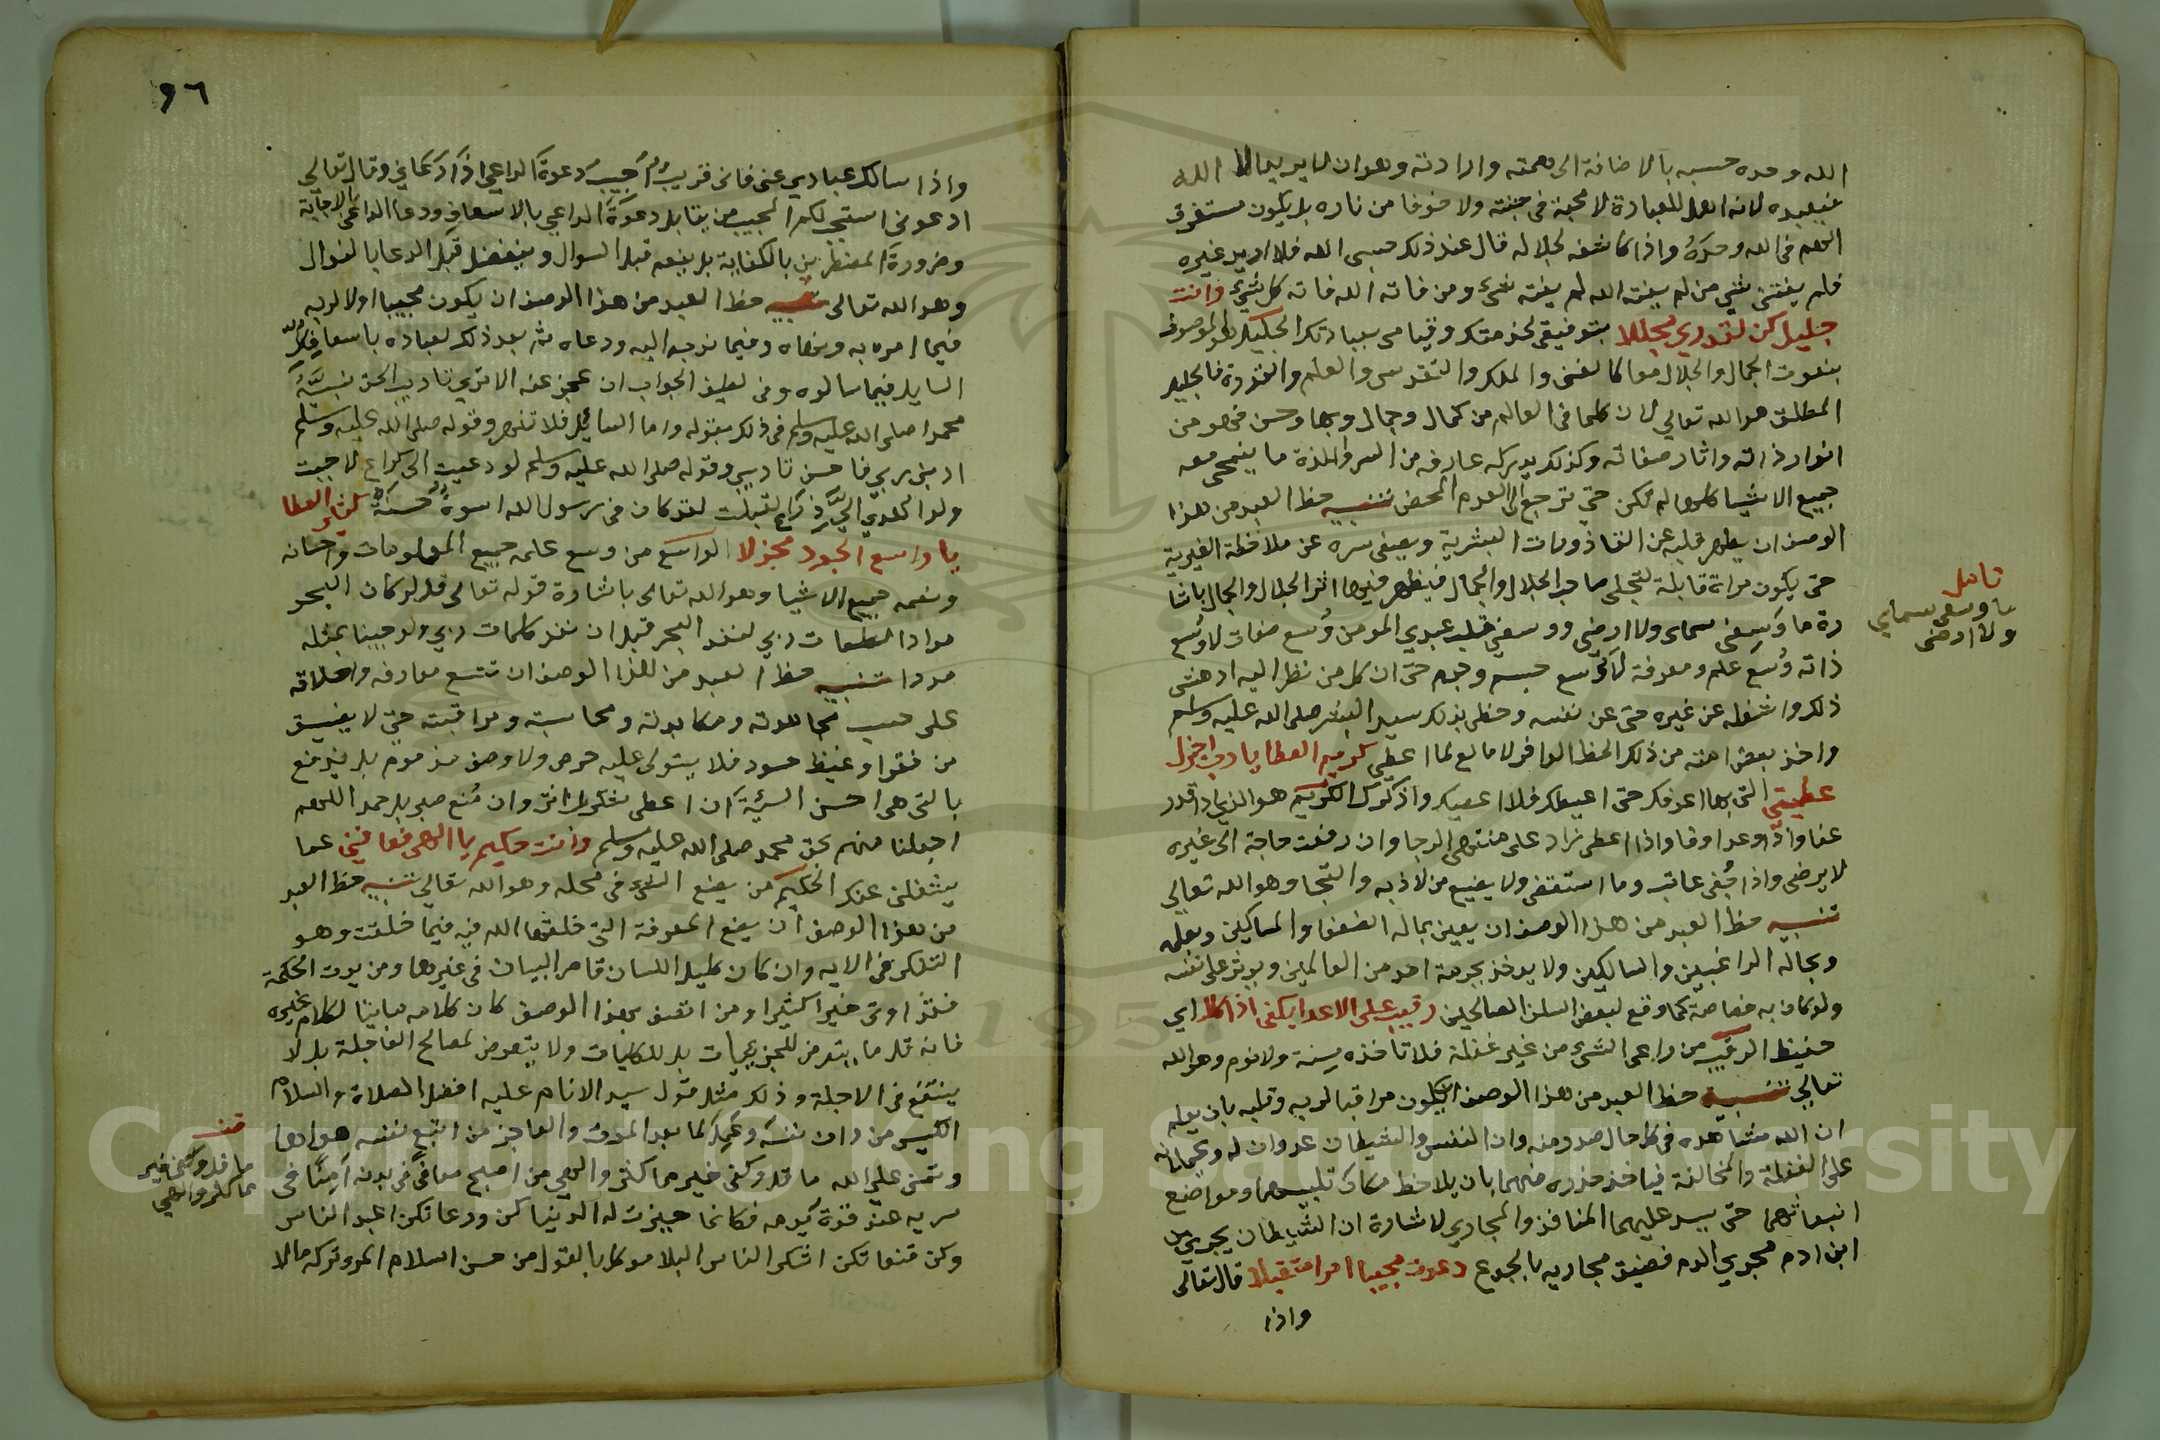 الله وحده حسبه بالاضافة الى همته وارادته وهو ان لا يريد الا الله
فيعبده لانه اهل للعبادة لا محبة في جنته ولا خوفا من ناره بل يكون مستغرق
الهم في الله وحده واذا كاشفه بجلاله قال عند ذلك حسبى الله فلا اريد غيره
فلم يفتنى شي من لم يفته الله لم يفته شىء ومن فاته الله فاته كل شىء وانت
جليل كن لقدري مجللا بتوفيقى لخدمتك وقيامى بعبادتك الجليل هو الموصوف
بنعوت الجمال والجلال معا كالغنى والملك والتقدس والعلم والقدرة فالجليل
المطلق هو الله تعالي لان كلما في العالم من كمال وجمال وبها وحسن فهو من
انوار ذاته واثار صفاته وكذلك يدركه عارفه من السر واللذة ما ينمحى معه
جميع الاشيا كلها لم تكن حتى ترجع الى العدم المحض تنبيه حظ العبد من هذا
الوصف ان يطهر قلبه عن القاذورات البشرية ويصفى سره عن ملاحظة الغيرية
حتى يكون مراة قابلة لتجلى صاحب الجلال والجمال فيظهر فيها اثر الجلال والجمال باشا
رة ما وسعنى سماى ولا ارضى ووسعنى قلب عبدي المومن وُسع صفات لا وُسع
ذاته وُسع علم ومعرفة لا وُسع جسم وجرم حتى ان كل من نظر اليه ادهشى
ذلك واشغله عن غيره حتى عن نفسه وحظى بذلك سيد البشر صلى الله عليه وسلم
واخذ بعض امته من ذلك الحظ الوافر لا مانع لما اعطى كريم العطايا رب اجزل
عطيتي التى بها اعرفك حتى اعيطك فلا اعصيك واذكرك الكريم هو الذي اذا قدر
عفا واذا وعد اوفا واذا اعطى زاد على منتهى الرجا وان رفعت حاجة الى غيره
لا يرضى واذا جُفى عاتب وما استقضى ولا يضيع من لاذ به والتجا وهو الله تعالي
تنبيه حظ العبد من هذا الوصف ان يعين بماله الضعفا والمساكين وبعلمه
وبحاله الراغبين والسالكين ولا يدخر بجرمة احد من العالمين ويوثر على نفسه
ولو كان به خصاصة كما وقع لبعض السلف الصالحين رقيب على الاعدا يكفى اذا كلا اي
حفيظ الرقيب من راعى الشىء من غير غفلة فلا تاخذه سنة ولا نوم وهو الله
تعالي تنبيه حظ العبد من هذا الوصف ان يكون مراقبا لربه وقلبه بان يعلم
ان الله مشاهده في كل حال صدر منه وان النفس والشيطان عدوان له ويحملانه
على الغفلة والمخالفة فياخذ حذره منهما بان يلاحظ مكان تلبيسهما ومواضع
انبعاثهما حتى يسد عليهما المنافذ والمجاري لاشارة ان الشيطان يجري من
ابن ادم مجري الدم فضيق مجاريه بالجوع دعوت مجيبا امرا متقبلا قال تعالى
واذا
تامل
ما وسعنى سماى
ولا ارضى
٩٦
واذا سالك عبادي عنى فانى قريب اُجيب دعوة الداعي اذا دعاني وقال تعالي
ادعوني استجب لكم المجيب من يقابل دعوة الداعي بالاسعاف ودعا الداعى بالاجابة
وضرورة المضطرين بالكفاية بل ينعم قبل السوال ويتفضل قبل الدعا بالنوال
وهو الله تعالى تنبيه حظ العبد من هذا الوصف ان يكون مجيبا اولا لربه
فيما امره به ونهاه وفيما ندبه اليه ودعاه ثم بعد ذلك لعباده باسعاف كل
السايل فيما سالوه وفى لطيف الجواب ان عجز عنه الا ترى تاديب الحق نبيه
محمدا صلى الله عليه وسلم فى ذلك بقوله واما السايل فلا تنهر وقوله صلى الله عليه وسلم
ادبنى ربي فاحسن تاديبي وقوله صلى الله عليه وسلم لو دعيت الى كراع لاجبت
ولو اهدي الىَّ ذراع لقبلت لقد كان فى رسول الله اسوة حسنة كثير العطا
يا واسع الجود مجزلا الواسع من وسع علمه جميع المعلومات واحسانه
ونعمه جميع الاشيا وهو الله تعالى باشارة قوله تعالى قل لو كان البحر
مدادا لكلمات ربي لنفد البحر قبل ان تنفد كلمات ربي ولو جينا بمثله
مددا تنبيه حظ العبد من هذا الوصف ان تتسع معارفه واخلاقه
على حسب مجاهدته ومكابدته ومحاسبته ومراقبته حتى لا يضيق
من فقر او غيظ حسود فلا يستولى عليه حرص ولا وصف مذموم بل يدفع
بالتى هي احسن السيئة ان اعطى شكر بل اثر وان مُنع صبر بل حمد اللهم
اجعلنا منهم بحق محمد صلى الله عليه وسلم وانت حكيم يا الهى فعافينى عما
يشغلنى عنك الحكيم من يضع الشىء في محله وهو الله تعالي تنبيه حظ العبد
من هذا الوصف ان يضع المعرفة التى خلقها الله فيه فيما خلقت وهو
التفكر في الايه وان كان كليل اللسان قاصر البيان في غيرها ومن يوت الحكمة
فقد اوتى خيرا كثيرا ومن اتصف بهذا الوصف كان كلامه مباينا لكلام غيره
فانه قل ما يتعرض للجزييات بل للكليات ولا يتعرض لمصالح العاجلة بل لا
ينتفع في الاجلة وذلك مثل قول سيد الانام عليه افضل الصلاة والسلام
الكيس من دان نفسه وعمل لما بعد الموت والعاجز من اتبع نفسه هواها
وتمنى علي الله ما قل وكفى خير مما كثر والهى من اصبح معافى في بدنه آمنًا فى
سربه عنده قوة يومه فكانما حيزت له الدنيا كن ورعا تكن اعبد الناس
وكن قنعا تكن اشكر الناس البلا موكل بالقول من حسن اسلام المرء تركه مالا
قف
ما قل وكفى خير
مما كثر والهي